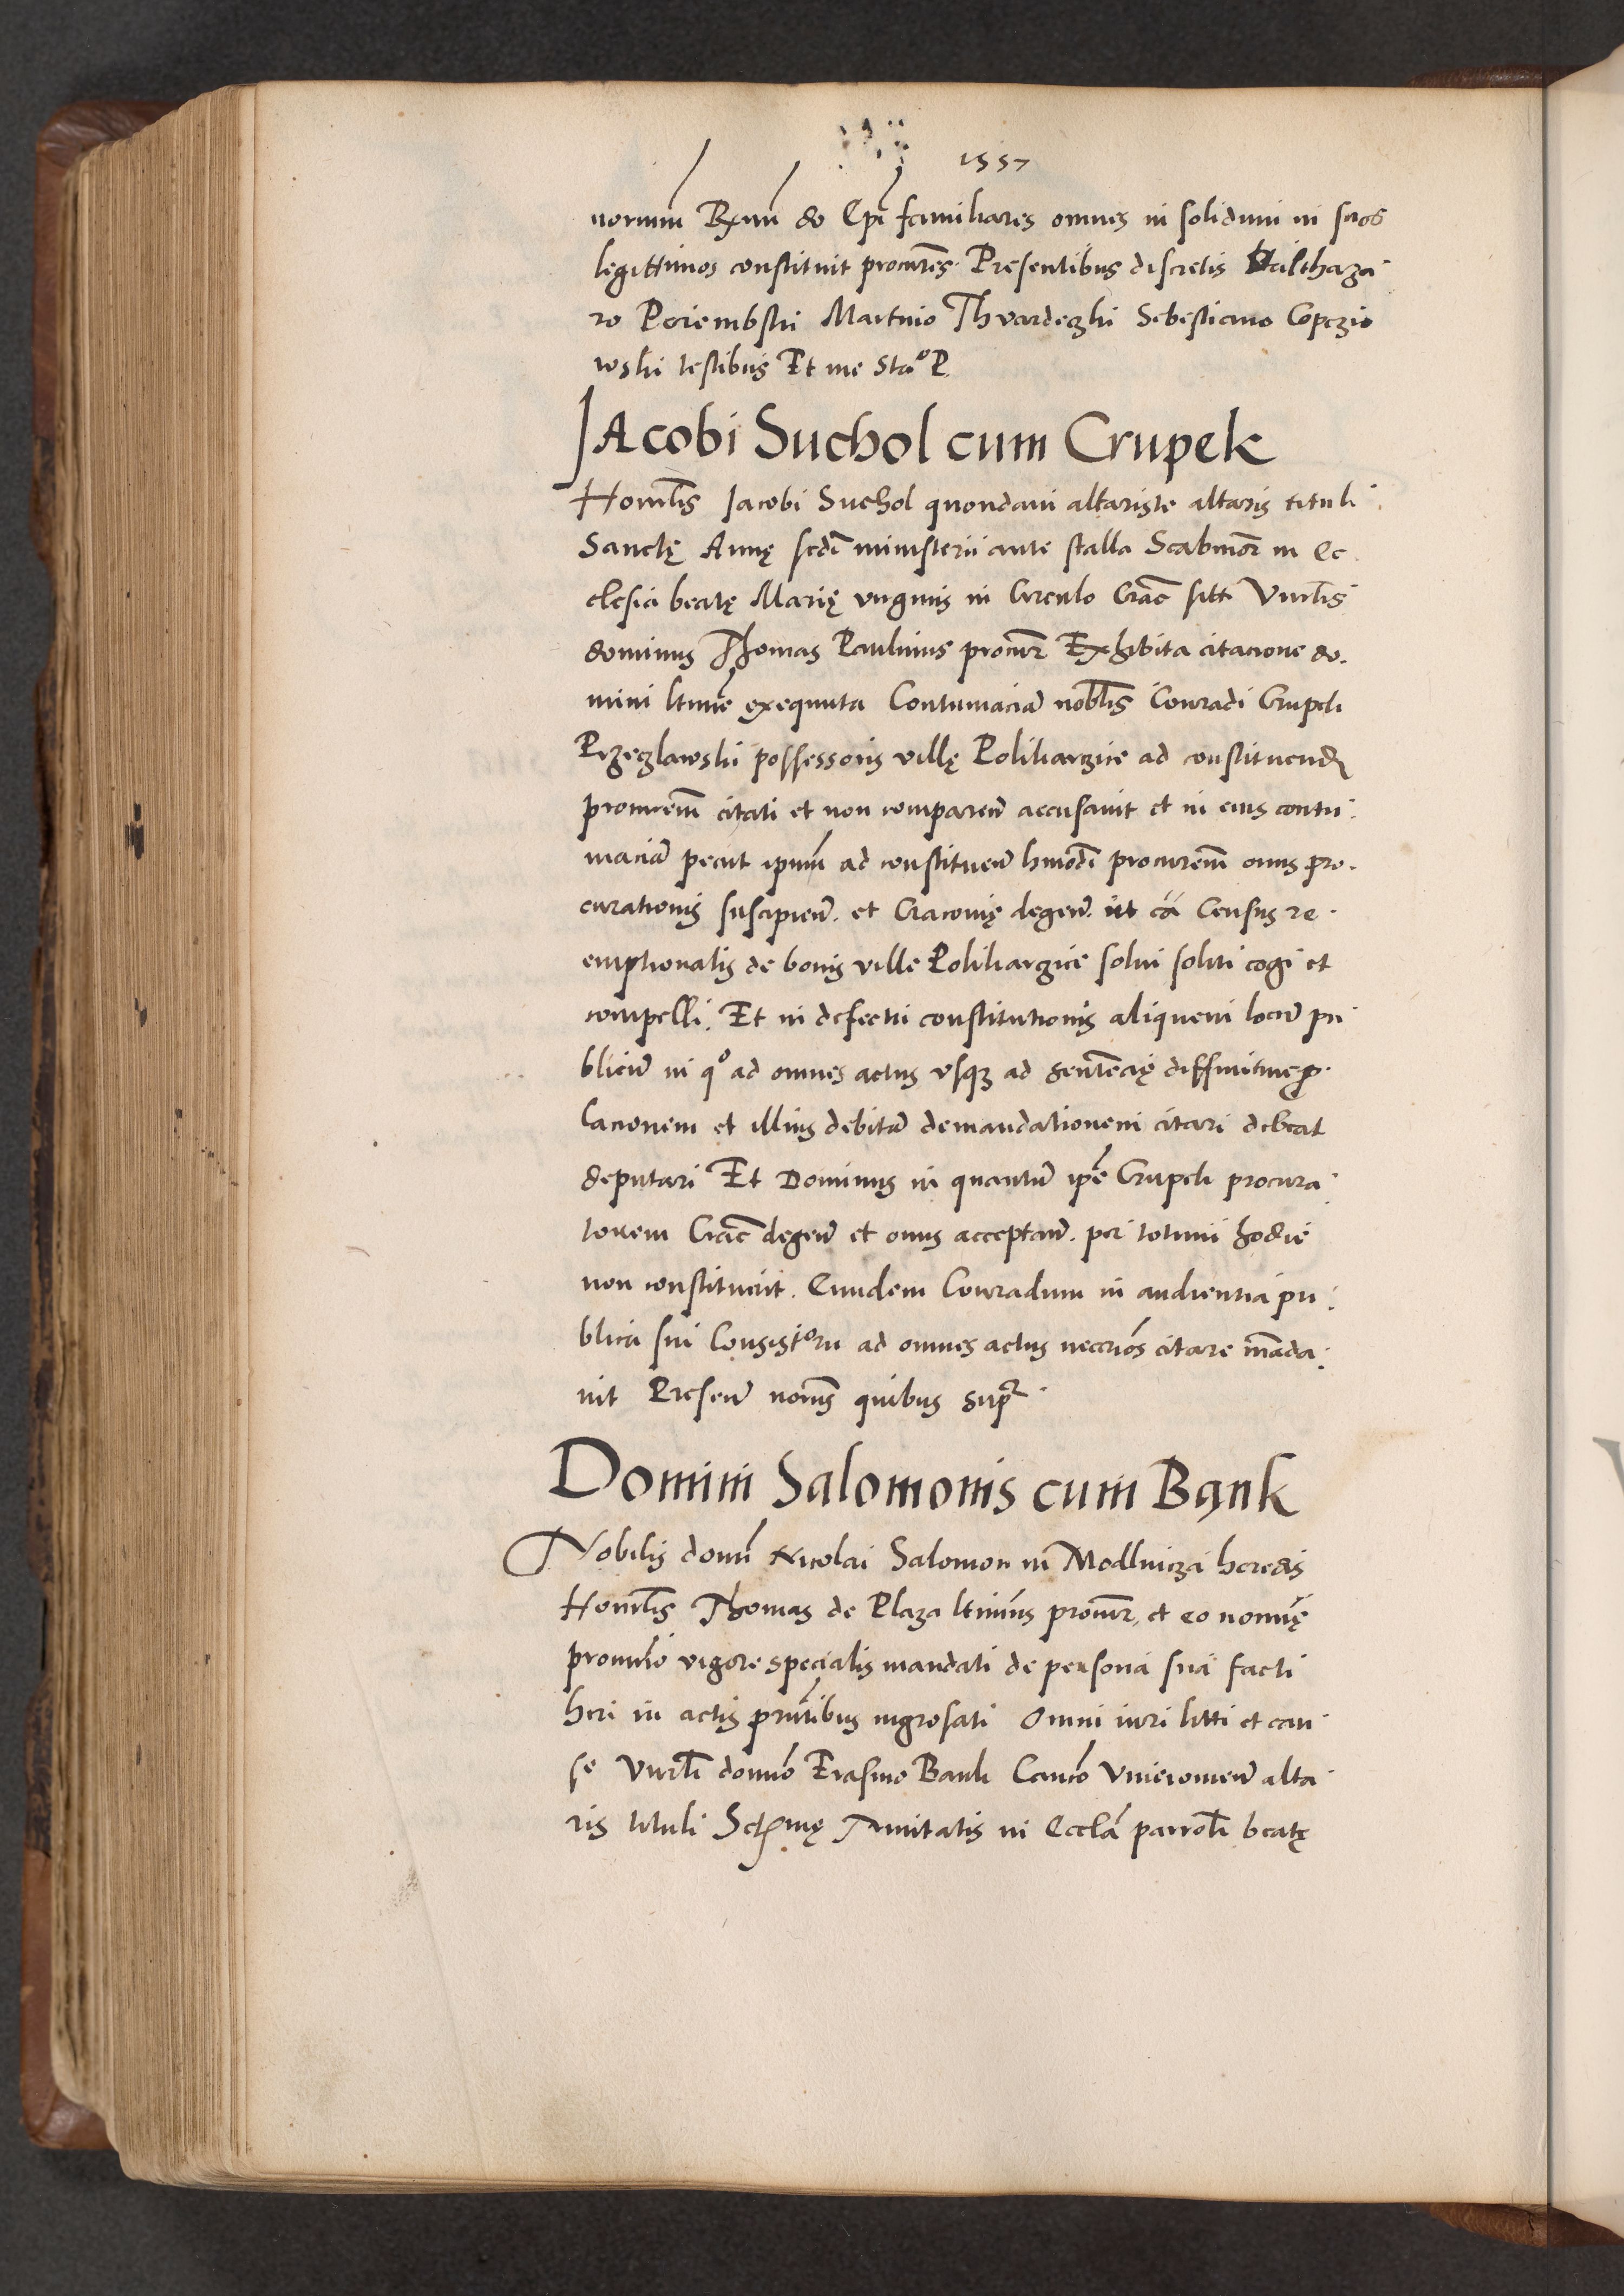 1557
norum Rxmi do Epi familiares omnes in solidum in suos
legittimos constituit procures Presentibus discretis Balthaza
ro Porembski Martino Thvardeczki Sebestiano Copczio
wski testibus Et me Stao P
Jacobi Suchol cum Crupek
Honrlis Jacobi Suchol quondam altariste altaris tituli
Sanctę Annę scdi ministerii ante stalla Scabinor in Ec
clesia beatę Marię virginis in Circulo Crac siti Vnrlis
dominus Thomas Paulinus procur Exhibita citacione do
mini ltime exequuta Contumaciam noblis Conradi Crupek
Przeczlawski possessoris villę Polikarzice ad constituend
procurem citati et non comparen accusavit et in eius contu
maciam peciit ipsum ad constituen hmodi procurem onus pro
curationis suscipien. et Cracovię degen. in cā Census re
emptionalis de bonis ville Polikarzice solvi soliti cogi et
compelli. Et in defectu constitutionis aliquem locum pu
blicum in quo ad omnes actus vsque ad sententię diffinitive pro
lacionem et illius debitam demandationem citari debeat
deputari Et Dominus in quantum ipse Crupek procura
torem Crac degen et onus acceptan. per totum hodie
non constituerit. Eundem Conradum in audientia pu
blica sui Consistorii ad omnes actus neccrios citare manda
vit Presen nomis quibus supra
Domini Salomonis cum Bank
Nobilis domi Nicolai Salomon in Modlnicza heredis
Honrlis Thomas de Plaza ltimus procur, et eo nomine
procurio vigore specialis mandati de persona sua facti
heri in actis prntibus ingrosati Omni iuri litti et cau
se Vnrli domno Erasmo Bank Canco Vniciovien alta
ris tituli Sctismę Trinitatis in Ecclā parrochli beatę